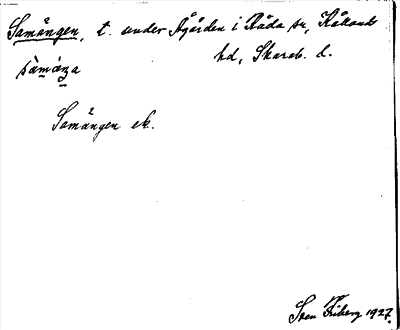 Samängen, t. under Ågården i Råda sn, Kålands
hd, Skarab. l.
sàmäŋa
Samängen ek.
Sven Friberg 1927.